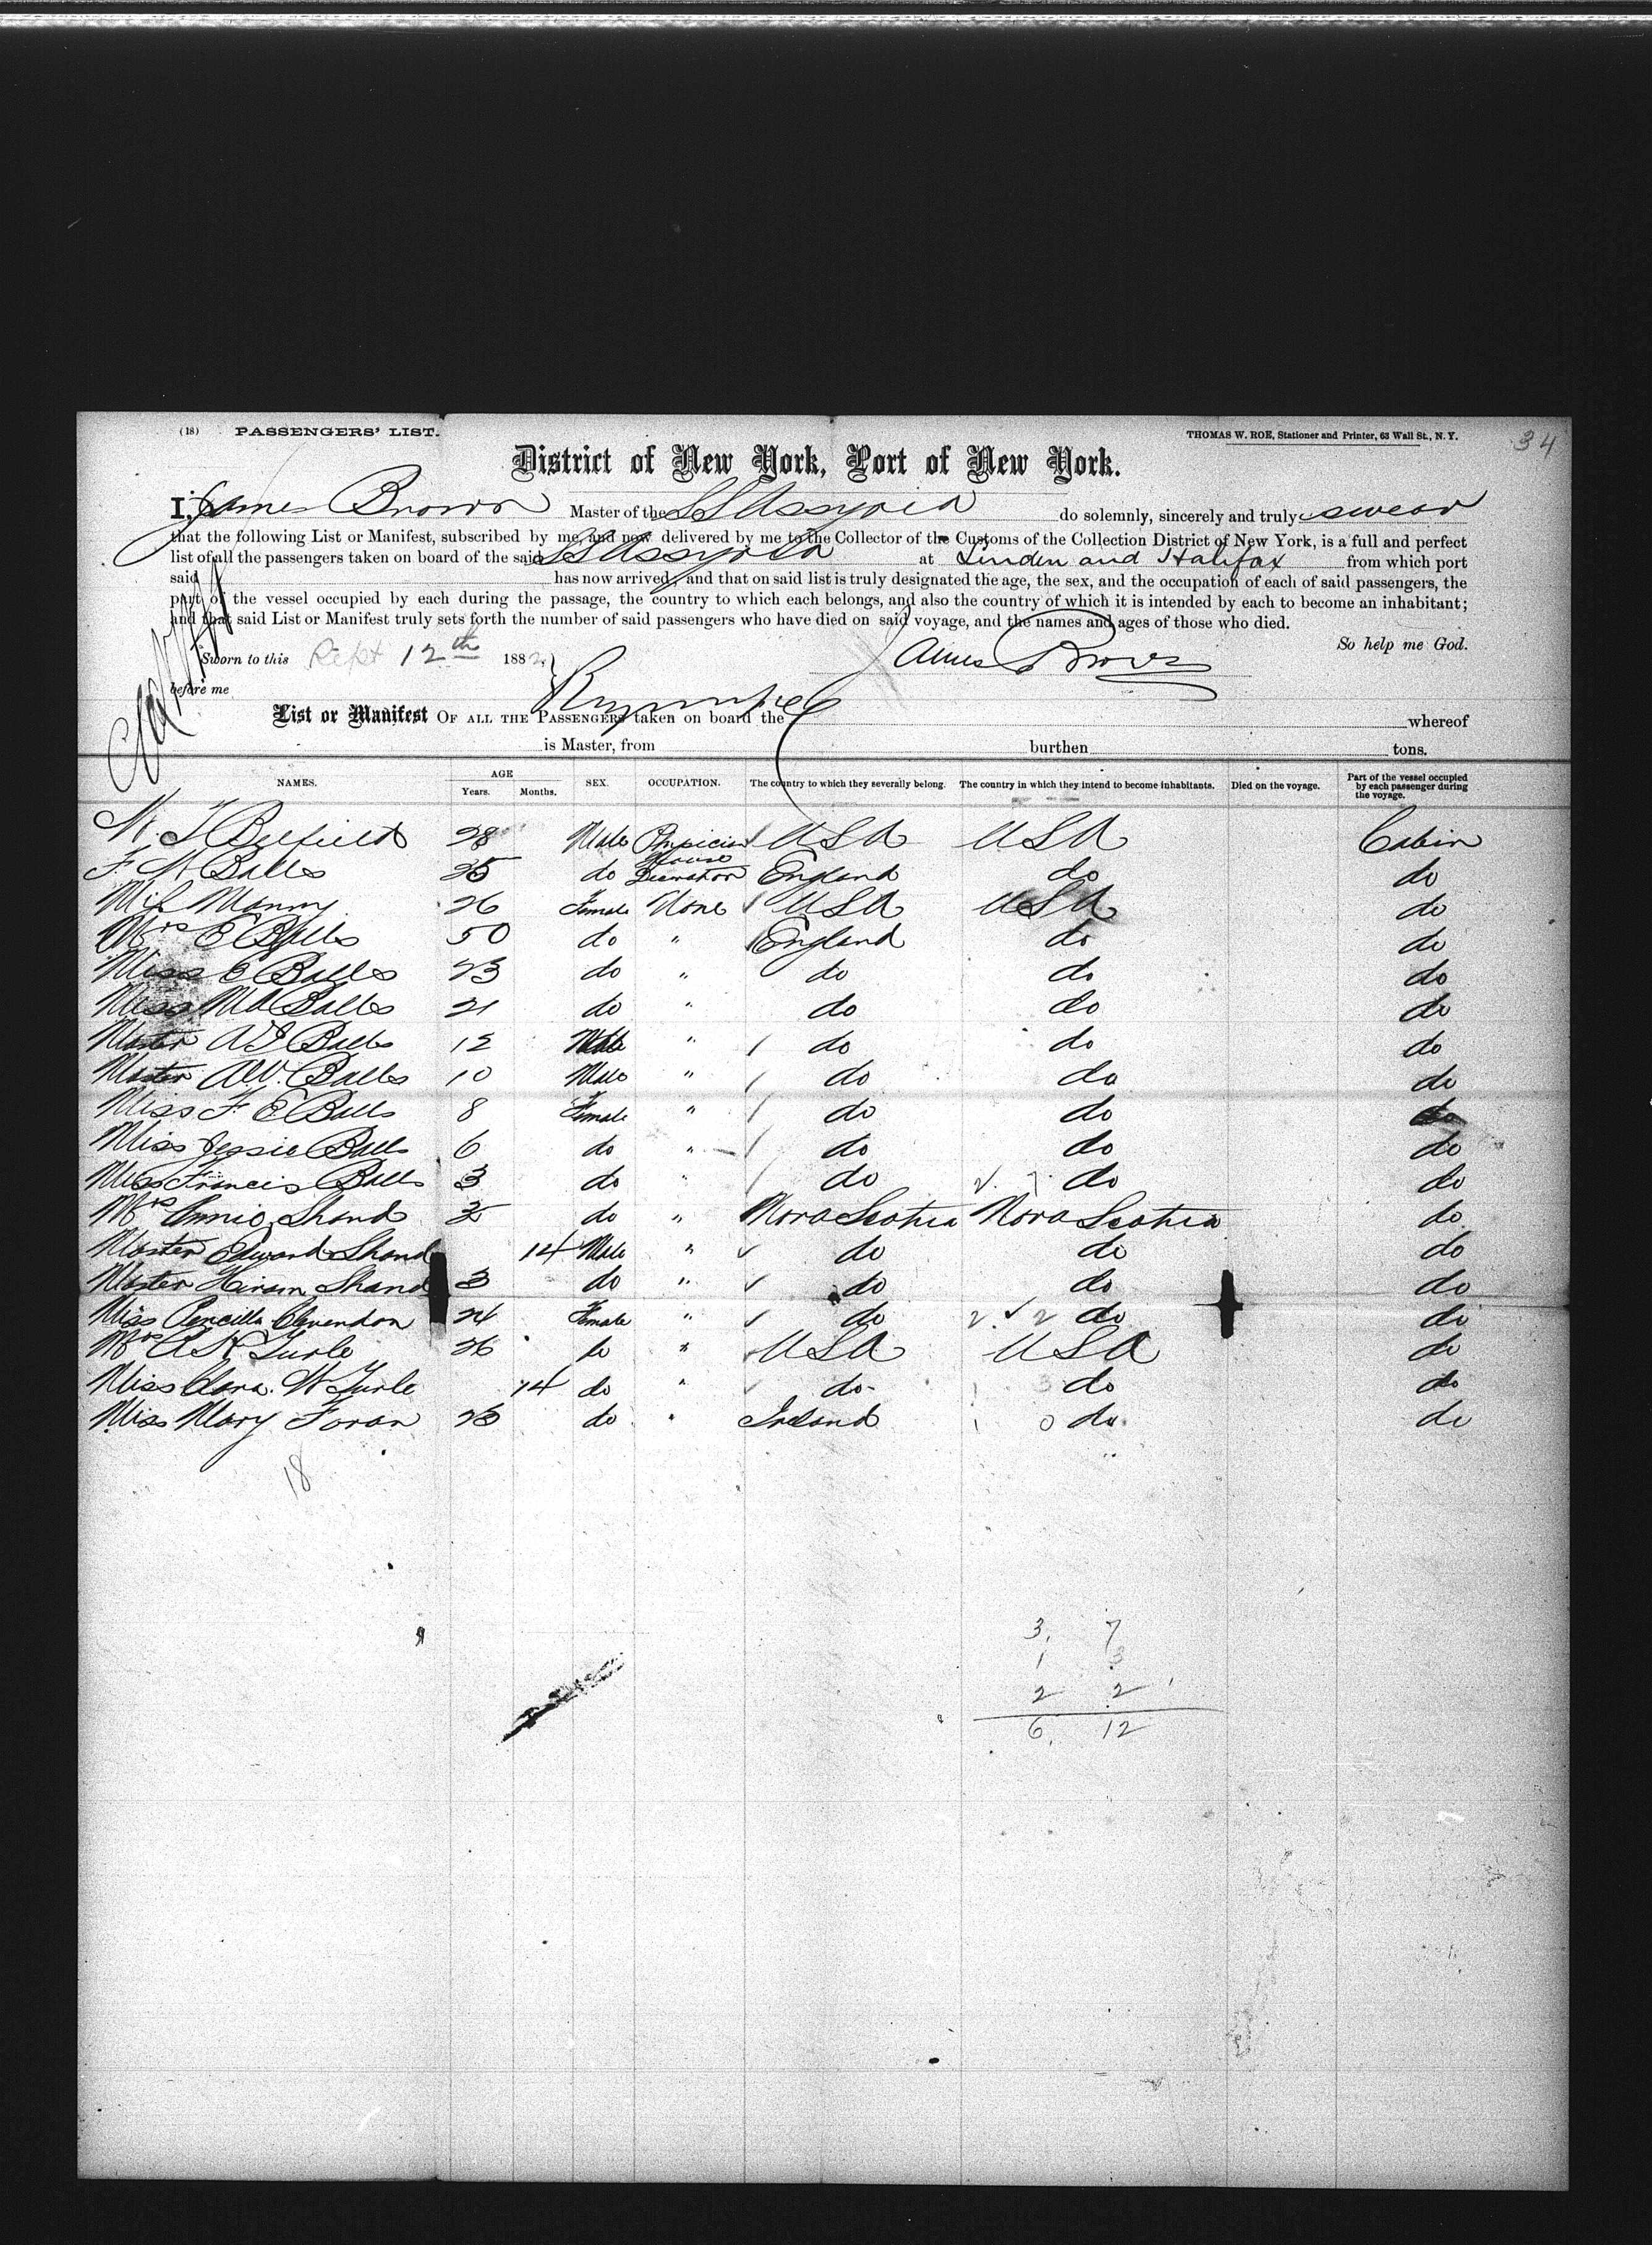 (18) PASSENGERS' LIST. THOMAS W. ROE, Stationer and Printer, 63 Wall St., N. Y. 34
District of New York, Port of New York.
I, James Brown Master of the SS Assyria do solemnly, sincerely and truly swear
that the following List or Manifest, subscribed by me, and now delivered by me to the Collector of the Customs of the Collection District of New York, is a full and perfect
list of all the passengers taken on board of the said SS Assyria at Linden and Halifax from which port
said has now arrived; and that on said list is truly designated the age, the sex, and the occupation of each of said passengers, the
part of the vessel occupied by each during the passage, the country to which each belongs, and also the country of which it is intended by each to become an inhabitant;
and that said List or Manifest truly sets forth the number of said passengers who have died on said voyage, and the names and ages of those who died.
So help me God.
Sworn to this Sept 12th 1882 James Brown
before me
List or Manifest OF ALL THE PASSENGERS taken on board the whereof
is Master, from burthen tons.
NAMES. AGE Years. Months. SEX. OCCUPATION. The country to which they severally belong. The country in which they intend to become inhabitants. Died on the voyage. Part of the vessel occupied by each passenger during the voyage.
28 Male USA USA Cabin
F. W Balls 25 do House Decorator England do do
Manny 26 Female None USA USA do
Mrs E Balls 50 do " England do do
Miss E Balls 23 do " do do do
Miss M A Balls 21 do " do do do
Master A J Balls 12 Male " do do do
Master A W. Balls 10 Male " do do do
Miss F. E Balls 8 Female " do do do
Miss Jessie Balls 6 do " do do do
Miss Francis Balls 3 do " do 2. 7 do do
Mrs Annie Shand do " Nova Scotia Nova Scotia do
Master Edward Shand 14 Male " do do do
Master Hiram Shand 3 do " do do do
Miss Clevendon 24 Female " do 2. 2 do do
Mrs A K Turle 26 do " USA USA do
Miss Clara. W Turle 14 do " do 3 do do
Miss Mary Foran 23 do " Ireland 1 0 do do
18
3. 7
1 3
2 2
6. 12